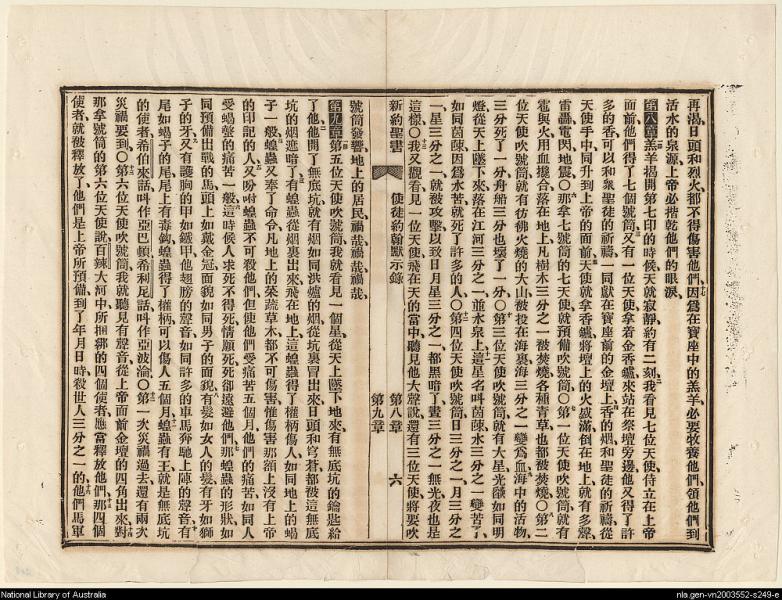 再渴、日頭和烈火、都不得傷害他們、因爲在寶座中的羔羊、必要牧養他們、領他們到
活水的泉源、上帝必揩乾他們的眼淚、
第八章羔羊揭開第七印的時候、天就寂靜約有二刻、我看見七位天使侍立在上帝
面前、他們得了七個號筒、又有一位天使拿着金香爐來站在祭壇旁邊、他又得了許
多的香、可以和衆聖徒的祈禱、一同獻在寶座前的金壇上、香的烟和聖徒的祈禱、從
天使手中同升到上帝的面前、天使就拿香爐、將壇上的火盛滿、倒在地上、就有多聲、
雷轟、電閃、地震○那拿七號筒的七天使、就預備吹號筒○第一位天使吹號筒、就有
雹與火、用血攙合、落在地上、凡樹木三分之一被焚燒、各種青草也都被焚燒○第二
位天使吹號筒、就有彷彿火燒的大山、被投在海裏、海三分之一變爲血、海中的活物、
三分死了一分、舟船三分也壞了一分○第三位天使吹號筒、就有大星、光燄如同明
燈、從天上墜下來、落在江河三分之一、並水泉上、這星名叫茵蔯、水三分之一變苦了、
如同茵蔯、因爲水苦、就死了許多的人○第四位天使吹號筒、日三分之一、月三分之
一、星三分之一、就被攻擊、以致日月星三分之一、都黑暗了、晝三分之一無光、夜也是
這樣○我又觀看、見一位天使飛在天的當中、聽見他大聲說、還有三位天使將要吹
新約聖書 使徒約翰默示錄 第八章 第九章 六
號筒發響、地上的居民、禍哉、禍哉、禍哉、
第九章第五位天使吹號筒、我就看見一個星從天上墜下地來、有無底坑的鑰匙給
了他、他開了無底坑、就有烟如同洪爐的烟、從坑裏冒出來、日頭和穹蒼、都被這無底
坑的烟遮暗了、有蝗蟲從烟裏出來、飛在地上、這蝗蟲得了權柄傷人、如同地上的蝎
子一般、蝗蟲又奉了命令、凡地上的菜蔬草木、都不可傷害、惟傷害那額上沒有上帝
的印記的人、又吩咐蝗蟲不可殺他們、但使他們受痛苦五個月、他們的痛苦、如同人
受蝎螫的痛苦一般、這時候人求死不得死、情願死、死卻遠避他們、那蝗蟲的形狀、如
同預備出戰的馬、頭上如戴金冠、面貌如同男子的面貌、有髮如女人的髮、有牙如獅
子的牙、又有護胸的甲、如鐵甲、他翅膀的聲音、如同許多的車馬奔馳上陣的聲音、有
尾如蝎子的尾、尾上有毒鉤、蝗蟲得了權柄、可以傷人五個月、蝗蟲有王、就是無底坑
的使者、希伯來話叫作亞巴頓、希利尼話叫作亞波淪○第一次災禍過去、還有兩次
災禍要到○第六位天使吹號筒、我就聽見有聲音從上帝面前金壇的四角出來、對
那拿號筒的第六位天使說、百辣大河中所捆綁的四個使者、應當釋放他們、那四個
使者就被釋放了、他們是上帝所預備、到了年月日時、殺世人三分之一的、他們馬軍
National Library of Australia
nla.gen-vn2003552-s249-e